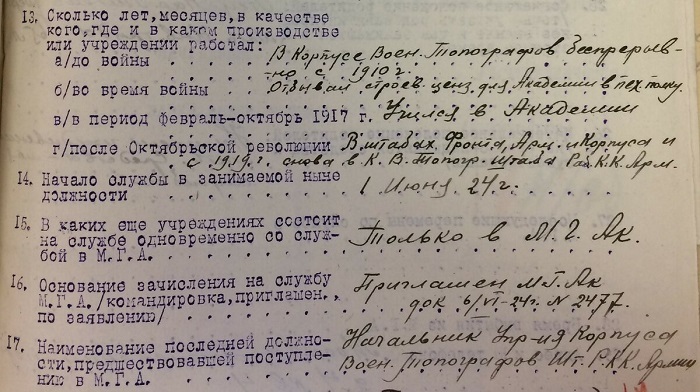 13. Сколько лет, месяцев, в качестве
кого, где и в каком производстве
или учреждении работал:
а/до войны В Корпусе Воен. Топографов беспрерыв-
но с 1910 г.
б/во время войны Отбывал строев. ценз для Академии в пех. полку.
в/в период февраль-октябрь 1917 г. Учился в Академии
г/после Октябрьской революции В штабах, Фронта, Арм. и Корпуса и
с 1919 г. снова в К. В. Топогр. Штаба Раб. К. К. Арм.
14. Начало службы в занимаемой ныне
должности 1 Июня 24 г.
15. В каких еще учреждениях состоит
на службе одновременно со служ-
бой в М.Г.А. Только в М. Г. Ак.
16. Основание зачисления на службу
М.Г.А./командировка, приглашен.,
по заявлению/ Приглашен М.Г. Ак
док 6/VI-24 г. N 2477.
17. Наименование последней должно-
сти, предшествовавшей поступле-
нию в М.Г.А. Начальник Упр-ия Корпуса
Воен. Топографов Шт. Р.К.К. Армии